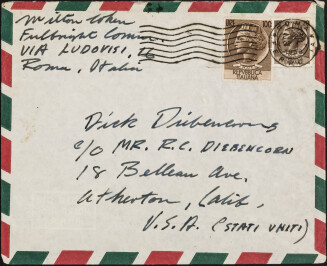 Milton Cohen
Fulbright Comm.
VIA LUDOVISI, 16
Roma, Italia
100 100
REPVBBLICA
ITALIANA
ROMA
Dick Diebenkorn
c/o MR. R.C. DIEBENKORN
18 Belleau Ave.
Atherton, Calif.
U.S.A. (STATI UNITI)